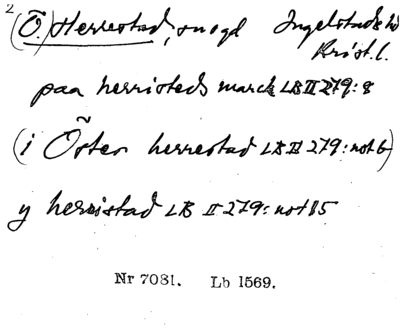 2
(Ö.) Herrestad, snogd Ingelstads hd
Krist. l.
paa herristeds marck LB II 279: 8
(i Öster herrestad LB II 279: not 6)
y herristad LB II 279: not 15
Nr 7081. Lb 1569.